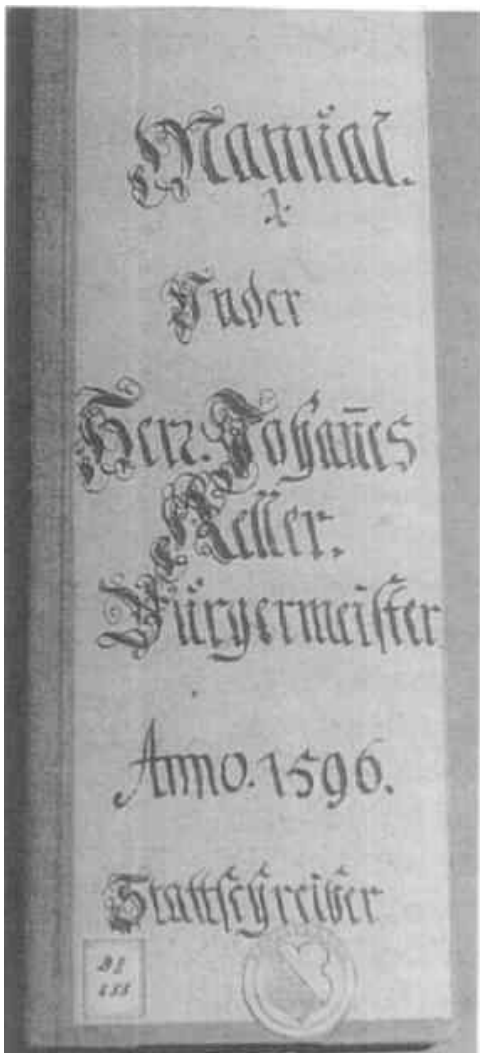 Manüal.
Vnder
Herr. Johan̄es
Keller.
Bürgermeister
Anno. 1596.
Stattschreiber
B II